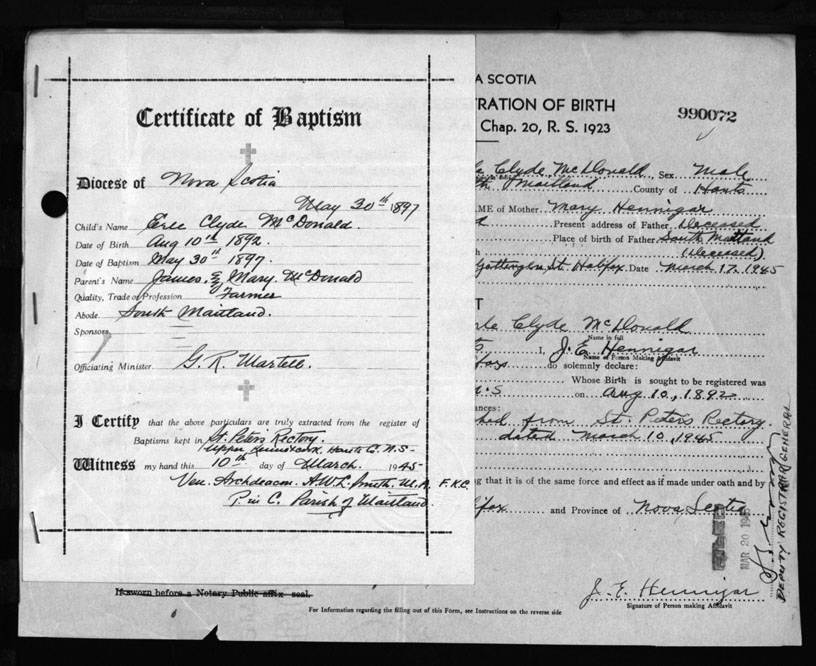 Certificate of Baptism
Diocese of Nova Scotia
May 30th 1897
Child's Name Erle Clyde McDonald.
Date of Birth Aug 10th 1892.
Date of Baptism May 30th 1897.
Parent's Name James, & Mary. McDonald
Quality, Trade or Profession Farmer
Abode South Maitland.
Sponsors
Officiating Minister G. R. Martell.
I Certify that the above particulars are truly extracted from the register of
Baptisms kept in St. Peter's Rectory.
Upper Kennetcook, Hants Co. N.S-
Witness my hand this 10th day of March. 1945-
Ven. Archdeacon. A.W.L. Smith. M.A. F.K.C.
P. in C. Parish of Maitland.
A SCOTIA
TRATION OF BIRTH
Chap. 20, R. S. 1923
990072
Clyde McDonald, Sex Male
Maitland County of Hants
ME of Mother Mary Hennigar
Present address of Father Deceased
Place of birth of Father South Maitland
(Deceased)
Gottengen St. Halifax. Date March 17, 1945
T
rle Clyde McDonald
Name in full
I, J. E. Hennigar
Name of Person Making Affidavit
fax do solemnly declare:
Whose Birth is sought to be registered was
N.S on Aug 10, 1892
ances:
hed from St. Peters Rectory
dated March 10, 1945
ng that it is of the same force and effect as if made under oath and by
ifax and Province of Nova Scotia
MAR 20 194
DEPUTY REGISTRAR GENERAL
J. E. Hennigar
Signature of Person making Affidavit
If sworn before a Notary Public affix seal.
For Information regarding the filling out of this Form, see Instructions on the reverse side